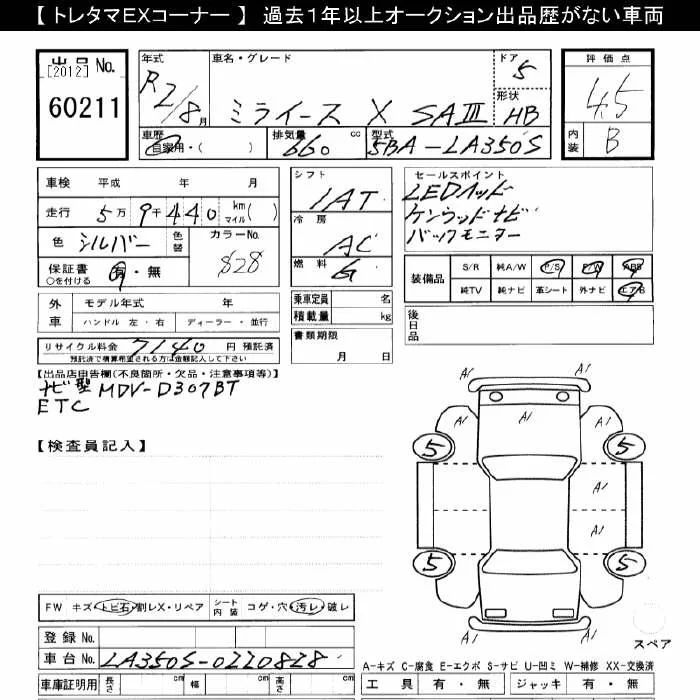 【 トレタマEXコーナー 】 過去1年以上オークション出品歴がない車両
出品No.
[2012]
60211
年式
R2/8月
車名・グレード
ミライース X SAⅢ
ドア
5
形状
HB
車歴
自家用・( )
排気量
660 cc
型式
5BA-LA350S
評価点
4.5
内装
B
車検 平成 年 月
走行 5万9千440 km マイル( )
色 シルバー 色替
カラーNo.
S28
保証書 有・無
○を付ける
外車
モデル年式 年
ハンドル 左・右 ディーラー・並行
リサイクル料金 7140 円 預託済
預託済で積算希望される方は金額記入して下さい
シフト
IAT
冷房
AC
燃料
G
乗車定員 名
積載量 kg
書類期限
月 日
セールスポイント
LEDヘッド
ケンウッドナビ
バックモニター
装備品
S/R 純A/W P/S P/W ABS
純TV 純ナビ 革シート 外ナビ エアB
後日品
【出品店申告欄(不良箇所・欠品・注意事項等)】
ナビ型 MDV-D307BT
ETC
【検査員記入】
A1
A1 A1 A1
5 5
A1
A1 A1
5 5
A1
A1
スペア
FW キズ・トビ石・割レX・リペア
シート内装 コゲ・穴・汚レ・破レ
登録No.
車台No. LA350S-0220828
車庫証明用 長さ cm 幅 cm 高さ cm
A-キズ C-腐食 E-エクボ S-サビ U-凹ミ W-補修 XX-交換済
工具 有・無 ジャッキ 有・無